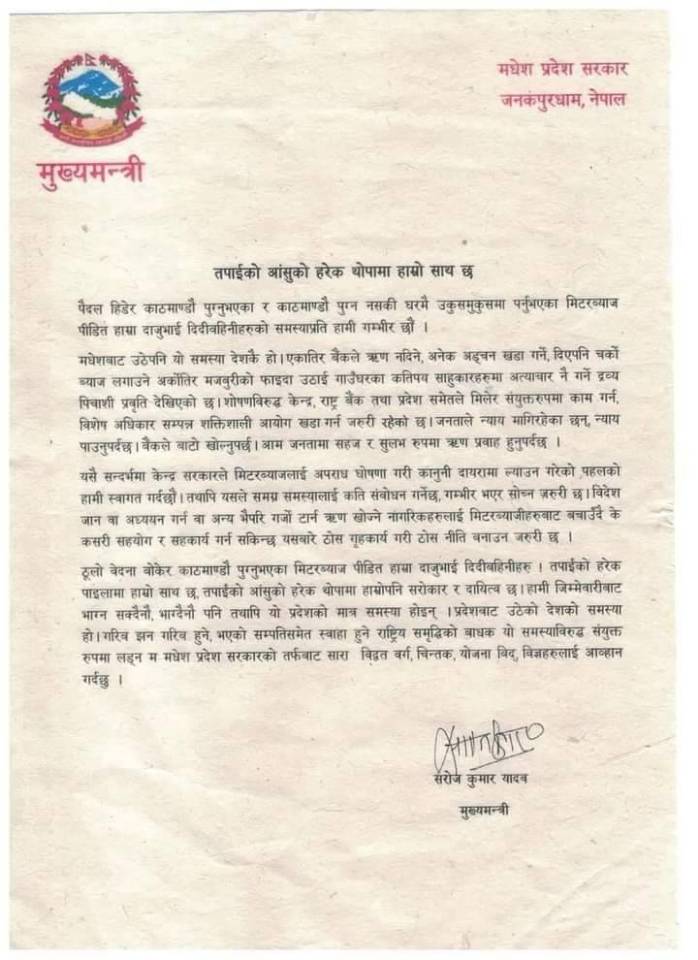 मधेश प्रदेश सरकार
जनकपुरधाम, नेपाल
मुख्यमन्त्री
तपाईको आंसुको हरेक थोपामा हाम्रो साथ छ
पैदल हिडेर काठमाण्डौ पुग्नुभएका र काठमाण्डौ पुग्न नसकी घरमै उकुसमुकुसमा पर्नुभएका मिटरब्याज
पीडित हाम्रा दाजुभाई दिदीवहिनीहरुको समस्याप्रति हामी गम्भीर छौं ।
मधेशबाट उठेपनि यो समस्या देशकै हो। एकातिर बैंकले ऋण नदिने, अनेक अड्चन खडा गर्ने, दिएपनि चर्को
ब्याज लगाउने अर्कोतिर मजबुरीको फाइदा उठाई गाउँघरका कतिपय साहुकारहरुमा अत्याचार नै गर्ने द्रव्य
पिचाशी प्रवृति देखिएको छ। शोषणविरुद्ध केन्द्र, राष्ट्र बैंक तथा प्रदेश समेतले मिलेर संयुक्तरुपमा काम गर्न,
विशेष अधिकार सम्पन्न शक्तिशाली आयोग खडा गर्न जरुरी रहेको छ। जनताले न्याय मागिरहेका छन्, न्याय
पाउनुपर्दछ। बैंकले बाटो खोल्नुपर्छ। आम जनतामा सहज र सुलभ रुपमा ऋण प्रवाह हुनुपर्दछ ।
यसै सन्दर्भमा केन्द्र सरकारले मिटरब्याजलाई अपराध घोषणा गरी कानुनी दायरामा ल्याउन गरेको पहलको
हामी स्वागत गर्दछौं। तथापि यसले समग्र समस्यालाई कति संवोधन गर्नेछ, गम्भीर भएर सोच्न ज़रुरी छ। विदेश
जान वा अध्ययन गर्न वा अन्य भैपरि गर्जो टार्न ऋण खोज्ने नागरिकहरुलाई मिटरब्याजीहरुबाट बचाउँदै के
कसरी सहयोग र सहकार्य गर्न सकिन्छ यसबारे ठोस गृहकार्य गरी ठोस नीति बनाउन जरुरी छ ।
ठूलो वेदना वोकेर काठमाण्डौ पुग्नुभएका मिटरब्याज पीडित हाम्रा दाजुभाई दिदीबहिनीहरु ! तपाईको हरेक
पाइलामा हाम्रो साथ छ, तपाईको आंसुको हरेक थोपामा हाम्रोपनि सरोकार र दायित्व छ। हामी जिम्मेवारीबाट
भाग्न सक्दैनौ, भाग्दैनौ पनि तथापि यो प्रदेशको मात्र समस्या होइन् । प्रदेशबाट उठेको देशको समस्या
हो। गरिव झन गरिव हुने, भएको सम्पतिसमेत स्वाहा हुने राष्ट्रिय समृद्धिको बाधक यो समस्याविरुद्ध संयुक्त
रुपमा लड्न म मधेश प्रदेश सरकारको तर्फबाट सारा विद्वत वर्ग, चिन्तक, योजना विद्, विज्ञहरुलाई आव्हान
गर्दछु ।
सरोज कुमार यादव
मुख्यमन्त्री